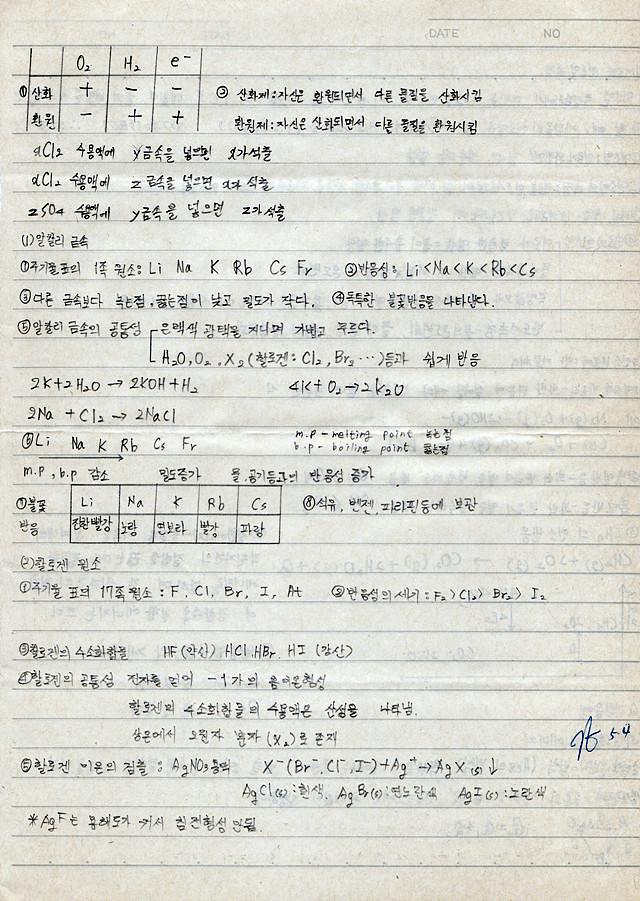 DATE NO
O₂ H₂ e⁻
① 산화 + − − ② 산화제: 자신은 환원되면서 다른 물질을 산화시킴
환원 − + + 환원제: 자신은 산화되면서 다른 물질을 환원시킴
xCl₂ 수용액에 y금속을 넣으면 x가 석출
xCl₂ 수용액에 z금속을 넣으면 x가 석출
zSO₄ 수용액에 y금속을 넣으면 z가 석출
(1) 알칼리 금속
①주기율표의 1족 원소: Li Na K Rb Cs Fr ②반응성: Li<Na<K<Rb<Cs
③다른 금속보다 녹는점, 끓는점이 낮고 밀도가 작다. ④독특한 불꽃반응을 나타낸다.
⑤알칼리 금속의 공통성 은백색 광택을 지니며 가볍고 무르다.
H₂O, O₂, X₂(할로겐: Cl₂, Br₂ …)등과 쉽게 반응
2K+2H₂O → 2KOH+H₂ 4K+O₂→2K₂O
2Na + Cl₂ → 2NaCl
⑥ Li Na K Rb Cs Fr m.p - melting point 녹는점
b.p - boiling point 끓는점
m.p, b.p 감소 밀도증가 물, 공기등과의 반응성 증가
⑦불꽃 Li Na K Rb Cs ⑧석유, 벤젠, 파라핀등에 보관
반응 진한빨강 노랑 연보라 빨강 파랑
(2) 할로겐 원소
①주기율 표의 17족 원소: F, Cl, Br, I, At ②반응성의 세기: F₂>Cl₂>Br₂>I₂
③할로겐의 수소화합물 HF(약산) HCl, HBr, HI (강산)
④할로겐의 공통성 전자를 얻어 -1가의 음이온형성
할로겐의 수소화합물의 수용액은 산성을 나타냄.
상온에서 2원자 분자(X₂)로 존재
5.4
⑤할로겐 이온의 검출: AgNO₃용액 X⁻(Br⁻ Cl⁻, I⁻)+Ag⁺→AgX(s)↓
AgCl(s):흰색, AgBr(s):연노란색 AgI(s):노란색
*AgF는 용해도가 커서 침전형성 안됨.